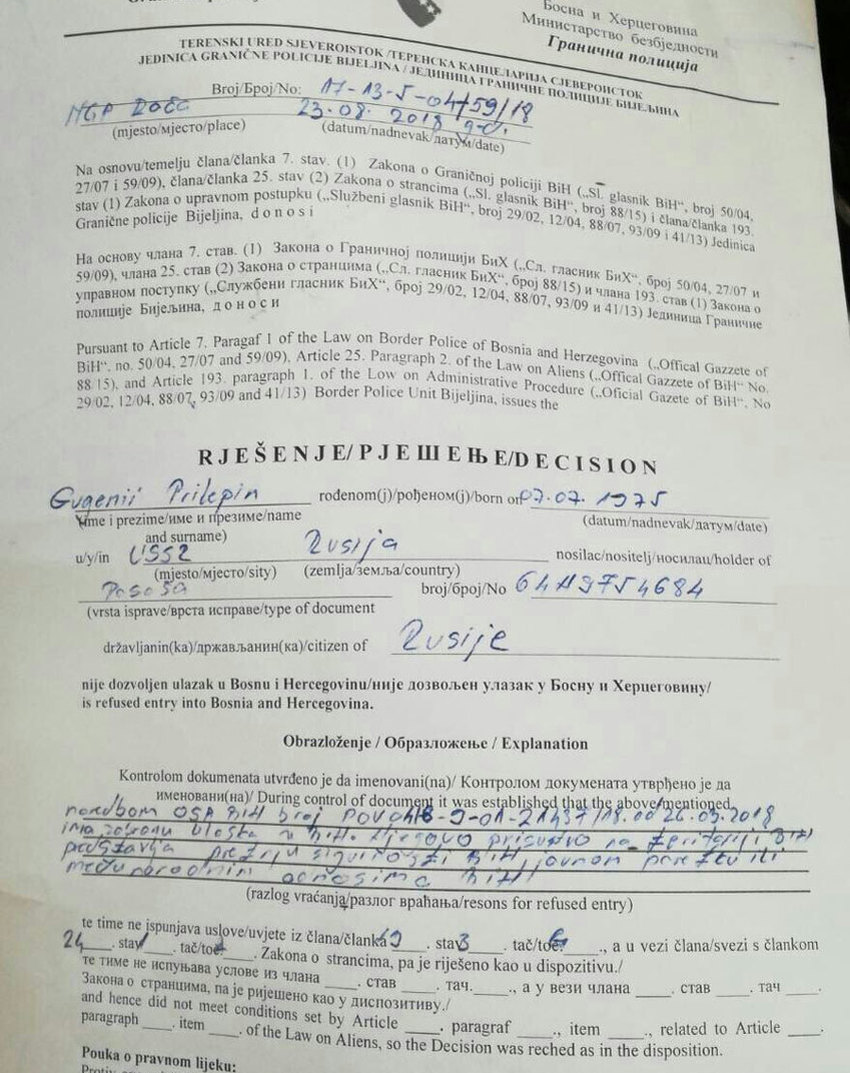 Босна и Херцеговина
Министарство безбједности
Гранична полиција
TERENSKI URED SJEVEROISTOK /ТЕРЕНСКА КАНЦЕЛАРИЈА СЈЕВЕРОИСТОК
JEDINICA GRANIČNE POLICIJE BIJELJINA / ЈЕДИНИЦА ГРАНИЧНЕ ПОЛИЦИЈЕ БИЈЕЉИНА
Broj/Број/No: 17-13-5-04/59/18
23.08.2018
(mjesto/мјесто/place) (datum/nadnevak/датум/date)
Na osnovu/temelju člana/članka 7. stav. (1) Zakona o Graničnoj policiji BiH („Sl. glasnik BiH“, broj 50/04,
27/07 i 59/09), člana/članka 25. stav (2) Zakona o strancima („Sl. glasnik BiH“, broj 88/15) i člana/članka 193.
stav (1) Zakona o upravnom postupku („Službeni glasnik BiH“, broj 29/02, 12/04, 88/07, 93/09 i 41/13) Jedinica
Granične policije Bijeljina, d o n o s i
На основу члана 7. став. (1) Закона о Граничној полицији БиХ („Сл. гласник БиХ“, број 50/04, 27/07 и
59/09), члана 25. став (2) Закона о странцима („Сл. гласник БиХ“, број 88/15) и члана 193. став (1) Закона о
управном поступку („Службени гласник БиХ“, број 29/02, 12/04, 88/07, 93/09 и 41/13) Јединица Граничне
полиције Бијељина, д о н о с и
Pursuant to Article 7. Paragaf 1 of the Law on Border Police of Bosnia and Herzegovina („Offical Gazzete of
BiH“, no. 50/04, 27/07 and 59/09), Article 25. Paragraph 2. of the Law on Aliens („Offical Gazzete of BiH“ No.
88 15), and Article 193. paragraph 1. of the Low on Administrative Procedure („Oficial Gazete of BiH“, No
29/02, 12/04, 88/07, 93/09 and 41/13) Border Police Unit Bijeljina, issues the
RJEŠENJE/РЈЕШЕЊЕ/DECISION
Evgenii Prilepin rođenom(j)/рођеном(ј)/born on 07.07.1975
ime i prezime/име и презиме/name (datum/nadnevak/датум/date)
and surname)
u/у/in Rusija nosilac/nositelj/носилац/holder of
(mjesto/мјесто/sity) (zemlja/земља/country)
broj/број/No 64N9754684
(vrsta isprave/врста исправе/type of document
državljanin(ka)/држављанин(ка)/citizen of Rusije
nije dozvoljen ulazak u Bosnu i Hercegovinu/није дозвољен улазак у Босну и Херцеговину/
is refused entry into Bosnia and Herzegovina.
Obrazloženje / Образложење / Explanation
Kontrolom dokumenata utvrđeno je da imenovani(na)/ Контролом докумената утврђено је да
именовани(на)/ During control of document it was established that the above/mentioned
OSA BiH broj 26.03.2018
ima zabranu ulaska u BiH. Njegovo prisustvo na teritoriji BiH
predstavlja prijetnju sigurnosti BiH, javnom poretku ili
međunarodnim odnosima BiH
(razlog vraćanja/разлог враћања/resons for refused entry)
te time ne ispunjava uslove/uvjete iz člana/članka 19 . stav 3 . tač/toč. 6 ., a u vezi člana/svezi s člankom
24 . stav 1 . tač/toč. . Zakona o strancima, pa je riješeno kao u dispozitivu./
те тиме не испуњава услове из члана ____. став ____. тач.____., а у вези члана ____. став ____. тач ____.
Закона о странцима, па је ријешено као у диспозитиву./
and hence did not meet conditions set by Article ____. paragraf ____., item ____., related to Article ____.
paragraph ____. item ____. of the Law on Aliens, so the Decision was reched as in the disposition.
Pouka o pravnom lijeku: